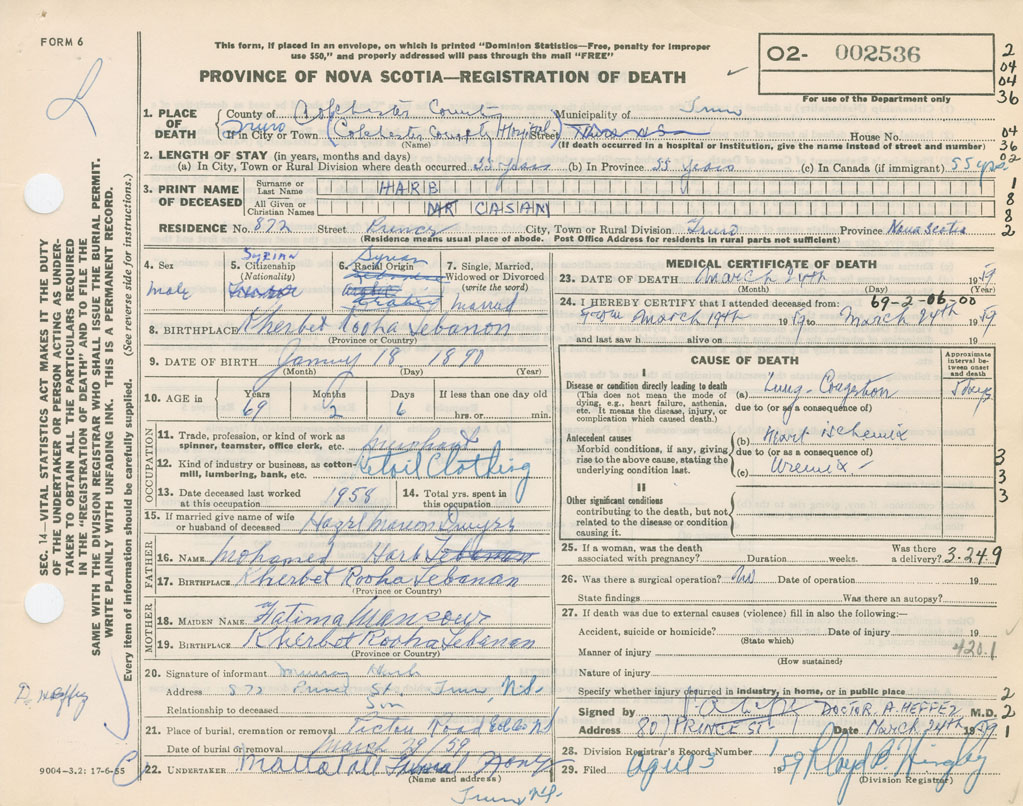 FORM 6
This form, if placed in an envelope, on which is printed "Dominion Statistics—Free, penalty for improper
use $50," and properly addressed will pass through the mail "FREE"
PROVINCE OF NOVA SCOTIA—REGISTRATION OF DEATH
02- 002536
For use of the Department only
2
04
04
36
04
36
02
1
8
8
2
SEC. 14—VITAL STATISTICS ACT MAKES IT THE DUTY
OF THE UNDERTAKER OR PERSON ACTING AS UNDER-
TAKER TO OBTAIN ALL THE PARTICULARS REQUIRED
IN THE "REGISTRATION OF DEATH" AND TO FILE THE
SAME WITH THE DIVISION REGISTRAR WHO SHALL ISSUE THE BURIAL PERMIT.
WRITE PLAINLY WITH UNFADING INK. THIS IS A PERMANENT RECORD.
Every item of information should be carefully supplied. (See reverse side for instructions.)
1. PLACE OF DEATH
County of Colchester County Municipality of Truro
If in City or Town Truro (Colchester County Hospital) Street House No.
(Name) (If death occurred in a hospital or institution, give the name instead of street and number)
2. LENGTH OF STAY (in years, months and days)
(a) In City, Town or Rural Division where death occurred 55 years (b) In Province 55 years (c) In Canada (if immigrant) 55 yrs
3. PRINT NAME OF DECEASED
Surname or Last Name HARB
All Given or Christian Names MR CASAN
RESIDENCE No. 872 Street Prince City, Town or Rural Division Truro Province Nova Scotia
(Residence means usual place of abode. Post Office Address for residents in rural parts not sufficient)
4. Sex Male
5. Citizenship (Nationality) Syrian
6. Racial Origin Syrian
Arabic
7. Single, Married, Widowed or Divorced (write the word) Married
8. BIRTHPLACE Kherbet Rooha Lebanon
(Province or Country)
9. DATE OF BIRTH 18 1890
(Month) (Day) (Year)
10. AGE in Years 69 Months 2 Days 6 If less than one day old
hrs. or min.
OCCUPATION
11. Trade, profession, or kind of work as
spinner, teamster, office clerk, etc.
12. Kind of industry or business, as cotton-
mill, lumbering, bank, etc. Retail Clothing
13. Date deceased last worked
at this occupation 1958
14. Total yrs. spent in
this occupation
15. If married give name of wife
or husband of deceased Hazel Marion
FATHER
16. NAME Mohamed Harb Lebanon
17. BIRTHPLACE Kherbet Rooha Lebanan
(Province or Country)
MOTHER
18. MAIDEN NAME Fatima Mansour
19. BIRTHPLACE Kherbet Rooha Lebanan
(Province or Country)
20. Signature of informant Murray Harb
Address 872 Prince St. Truro N.S.
Relationship to deceased Son
21. Place of burial, cremation or removal Pictou Road
Date of burial or removal March 28/59
22. UNDERTAKER Mattatall Funeral Home
(Name and address)
Truro N.S.
9004-3.2: 17-6-55
MEDICAL CERTIFICATE OF DEATH
23. DATE OF DEATH March 24th 1959
(Month) (Day) (Year)
24. I HEREBY CERTIFY that I attended deceased from: 69-2-06-00
from March 19th 1959 to March 24th 1959
and last saw h alive on 19
CAUSE OF DEATH
Approximate interval between onset and death
I
Disease or condition directly leading to death
(This does not mean the mode of
dying, e.g., heart failure, asthenia,
etc. It means the disease, injury, or
complication which caused death.)
(a) Lung Congestion 5 days
due to (or as a consequence of)
Antecedent causes
Morbid conditions, if any, giving
rise to the above cause, stating the
underlying condition last.
(b)
due to (or as a consequence of)
(c) Uremia
II
Other significant conditions
contributing to the death, but not
related to the disease or condition
causing it.
3
3
3
25. If a woman, was the death
associated with pregnancy? Duration weeks. Was there
a delivery? 3-249
26. Was there a surgical operation? No Date of operation 19
State findings Was there an autopsy?
27. If death was due to external causes (violence) fill in also the following:—
Accident, suicide or homicide? Date of injury 19
(State which)
Manner of injury 420.1
(How sustained)
Nature of injury
Specify whether injury occurred in industry, in home, or in public place 2
Signed by DOCTOR A. HEFFEZ M.D. 2
Address 807 PRINCE ST Date March 24th 1959 1
28. Division Registrar's Record Number
29. Filed April 3 1959 Lloyd B.
(Division Registrar)